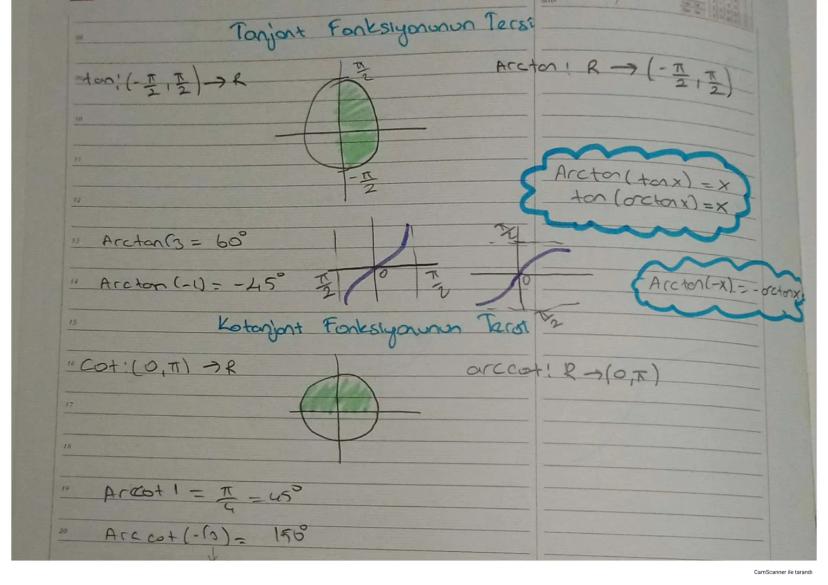 Tanjant Fonksiyonunun Tersi
tan: (-π/2, π/2) → R
Arctan: R → (-π/2, π/2)
π/2
-π/2
Arctan(tanx) = x
tan(arctanx) = x
Arctan√3 = 60°
Arctan(-1) = -45°
π/2 0 π/2
0
Arctan(-x) = -arctanx
Kotanjant Fonksiyonunun Tersi
Cot: (0, π) → R
arccot: R → (0, π)
Arccot 1 = π/4 = 45°
Arccot(-√3) = 150°
10
11
12
13
14
15
16
17
18
19
20
CamScanner ile tarandı